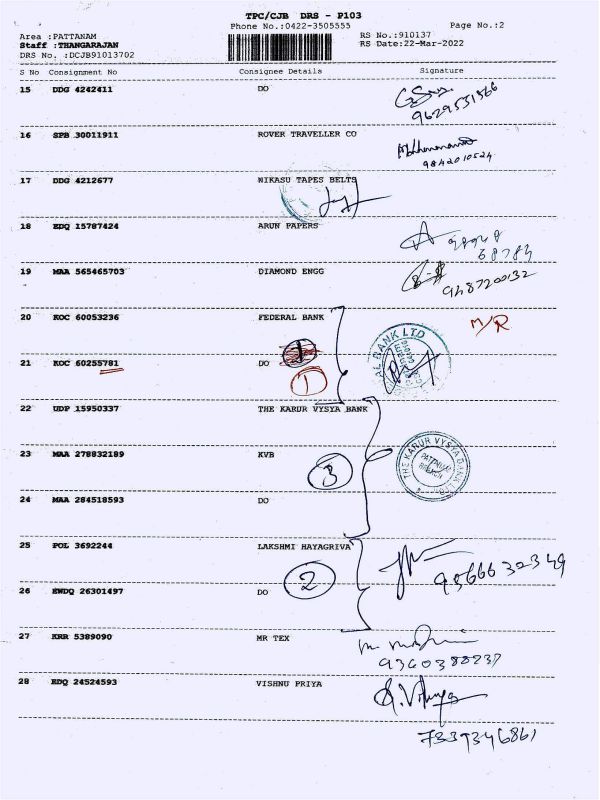 TPC/CJB DRS - P103
Phone No.:0422-3505555
Page No.:2
Area :PATTANAM
RS No.:910137
Staff :THANGARAJAN
RS Date:22-Mar-2022
DRS No. :DCJB91013702
S No Consignment No Consignee Details Signature
15 DDG 4242411 DO
9629551566
16 SPB 30011911 ROVER TRAVELLER CO
9842010524
17 DDG 4212677 NIKASU TAPES BELTS
18 EDQ 15787424 ARUN PAPERS
68784
19 MAA 565465703 DIAMOND ENGG
9487200132
20 KOC 60053236 FEDERAL BANK
M/R
21 KOC 60255781 DO
1
AL BANK LTD
22 UDP 15950337 THE KARUR VYSYA BANK
23 MAA 278832189 KVB
3
THE KARUR VYSYA BANK LTD
PATTANAM
BRANCH
24 MAA 284518593 DO
25 POL 3692244 LAKSHMI HAYAGRIVA
9566632349
26 EWDQ 26301497 DO
2
27 KRR 5389090 MR TEX
9360388237
28 EDQ 24524593 VISHNU PRIYA
7339346861